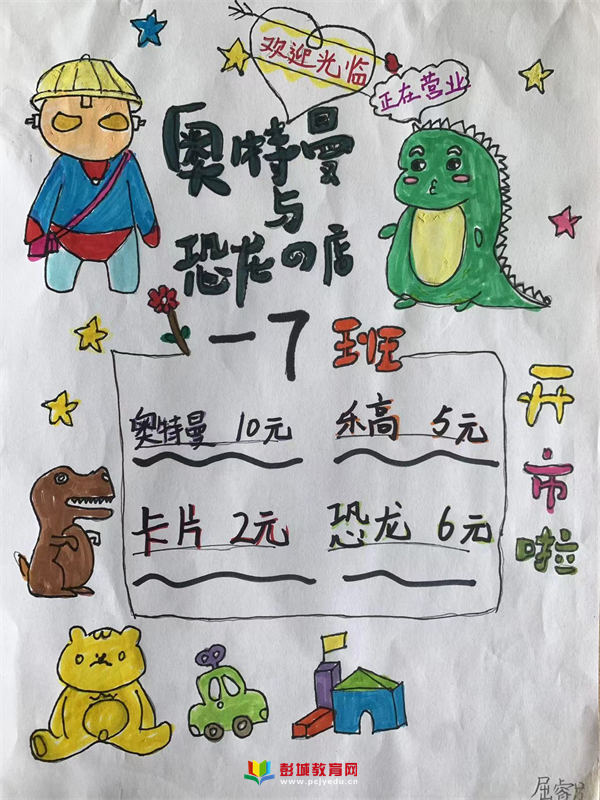 欢迎光临
正在营业
奥特曼
与
恐龙の店
一7班
奥特曼 10元
乐高 5元
卡片 2元
恐龙 6元
开市啦
彭城教育网
www.pcjyedu.cn